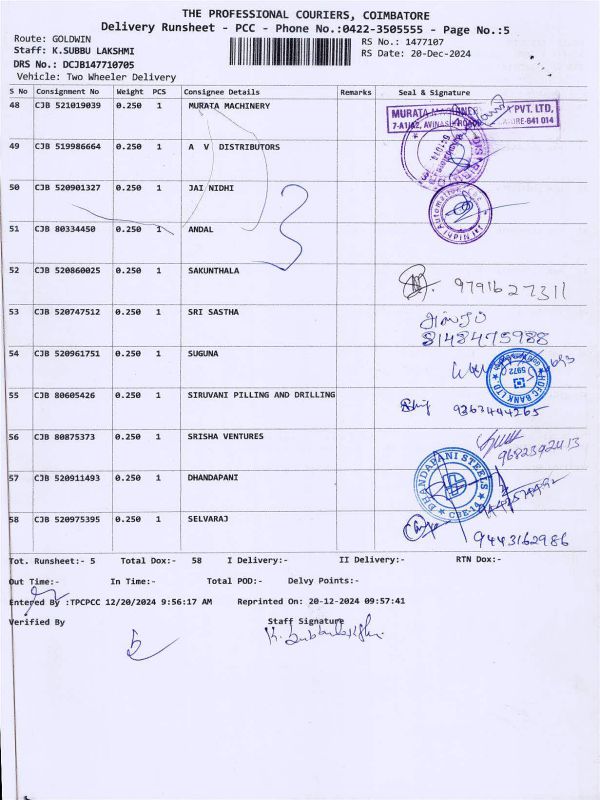 THE PROFESSIONAL COURIERS, COIMBATORE
Delivery Runsheet - PCC - Phone No.:0422-3505555 - Page No.:5
Route: GOLDWIN
RS No.: 1477107
Staff: K.SUBBU LAKSHMI
RS Date: 20-Dec-2024
DRS No.: DCJB147710705
Vehicle: Two Wheeler Delivery
S No Consignment No Weight PCS Consignee Details Remarks Seal & Signature
48 CJB 521019039 0.250 1 MURATA MACHINERY
MURATA MACHINERY PVT. LTD,
7-A1/A2, AVINASHI ROAD 641 014
49 CJB 519986664 0.250 1 A V DISTRIBUTORS
50 CJB 520901327 0.250 1 JAI NIDHI
Jai Nidhi Automation
51 CJB 80334450 0.250 1 ANDAL
52 CJB 520860025 0.250 1 SAKUNTHALA
9791627311
53 CJB 520747512 0.250 1 SRI SASTHA
8148475988
54 CJB 520961751 0.250 1 SUGUNA
HDFC BANK LTD.
5972
55 CJB 80605426 0.250 1 SIRUVANI PILLING AND DRILLING
9363444265
56 CJB 80875373 0.250 1 SRISHA VENTURES
9682392413
57 CJB 520911493 0.250 1 DHANDAPANI
DHANDAPANI STEELS
CBE-14
58 CJB 520975395 0.250 1 SELVARAJ
9443162986
Tot. Runsheet:- 5 Total Dox:- 58 I Delivery:- II Delivery:- RTN Dox:-
Out Time:- In Time:- Total POD:- Delvy Points:-
Entered By :TPCPCC 12/20/2024 9:56:17 AM Reprinted On: 20-12-2024 09:57:41
Verified By Staff Signature
K. Subbulakshmi